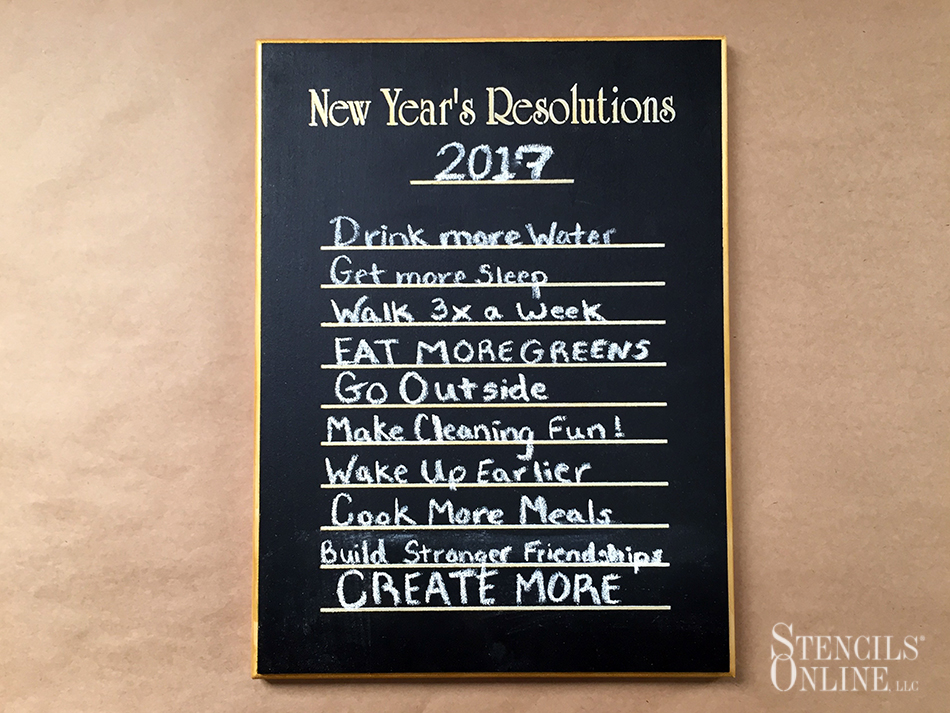 New Year's Resolutions
2017
Drink more Water
Get more Sleep
Walk 3x a Week
EAT MORE GREENS
Go Outside
Make Cleaning Fun!
Wake Up Earlier
Cook More Meals
Build Stronger Friendships
CREATE MORE
STENCILS®
ONLINE, LLC